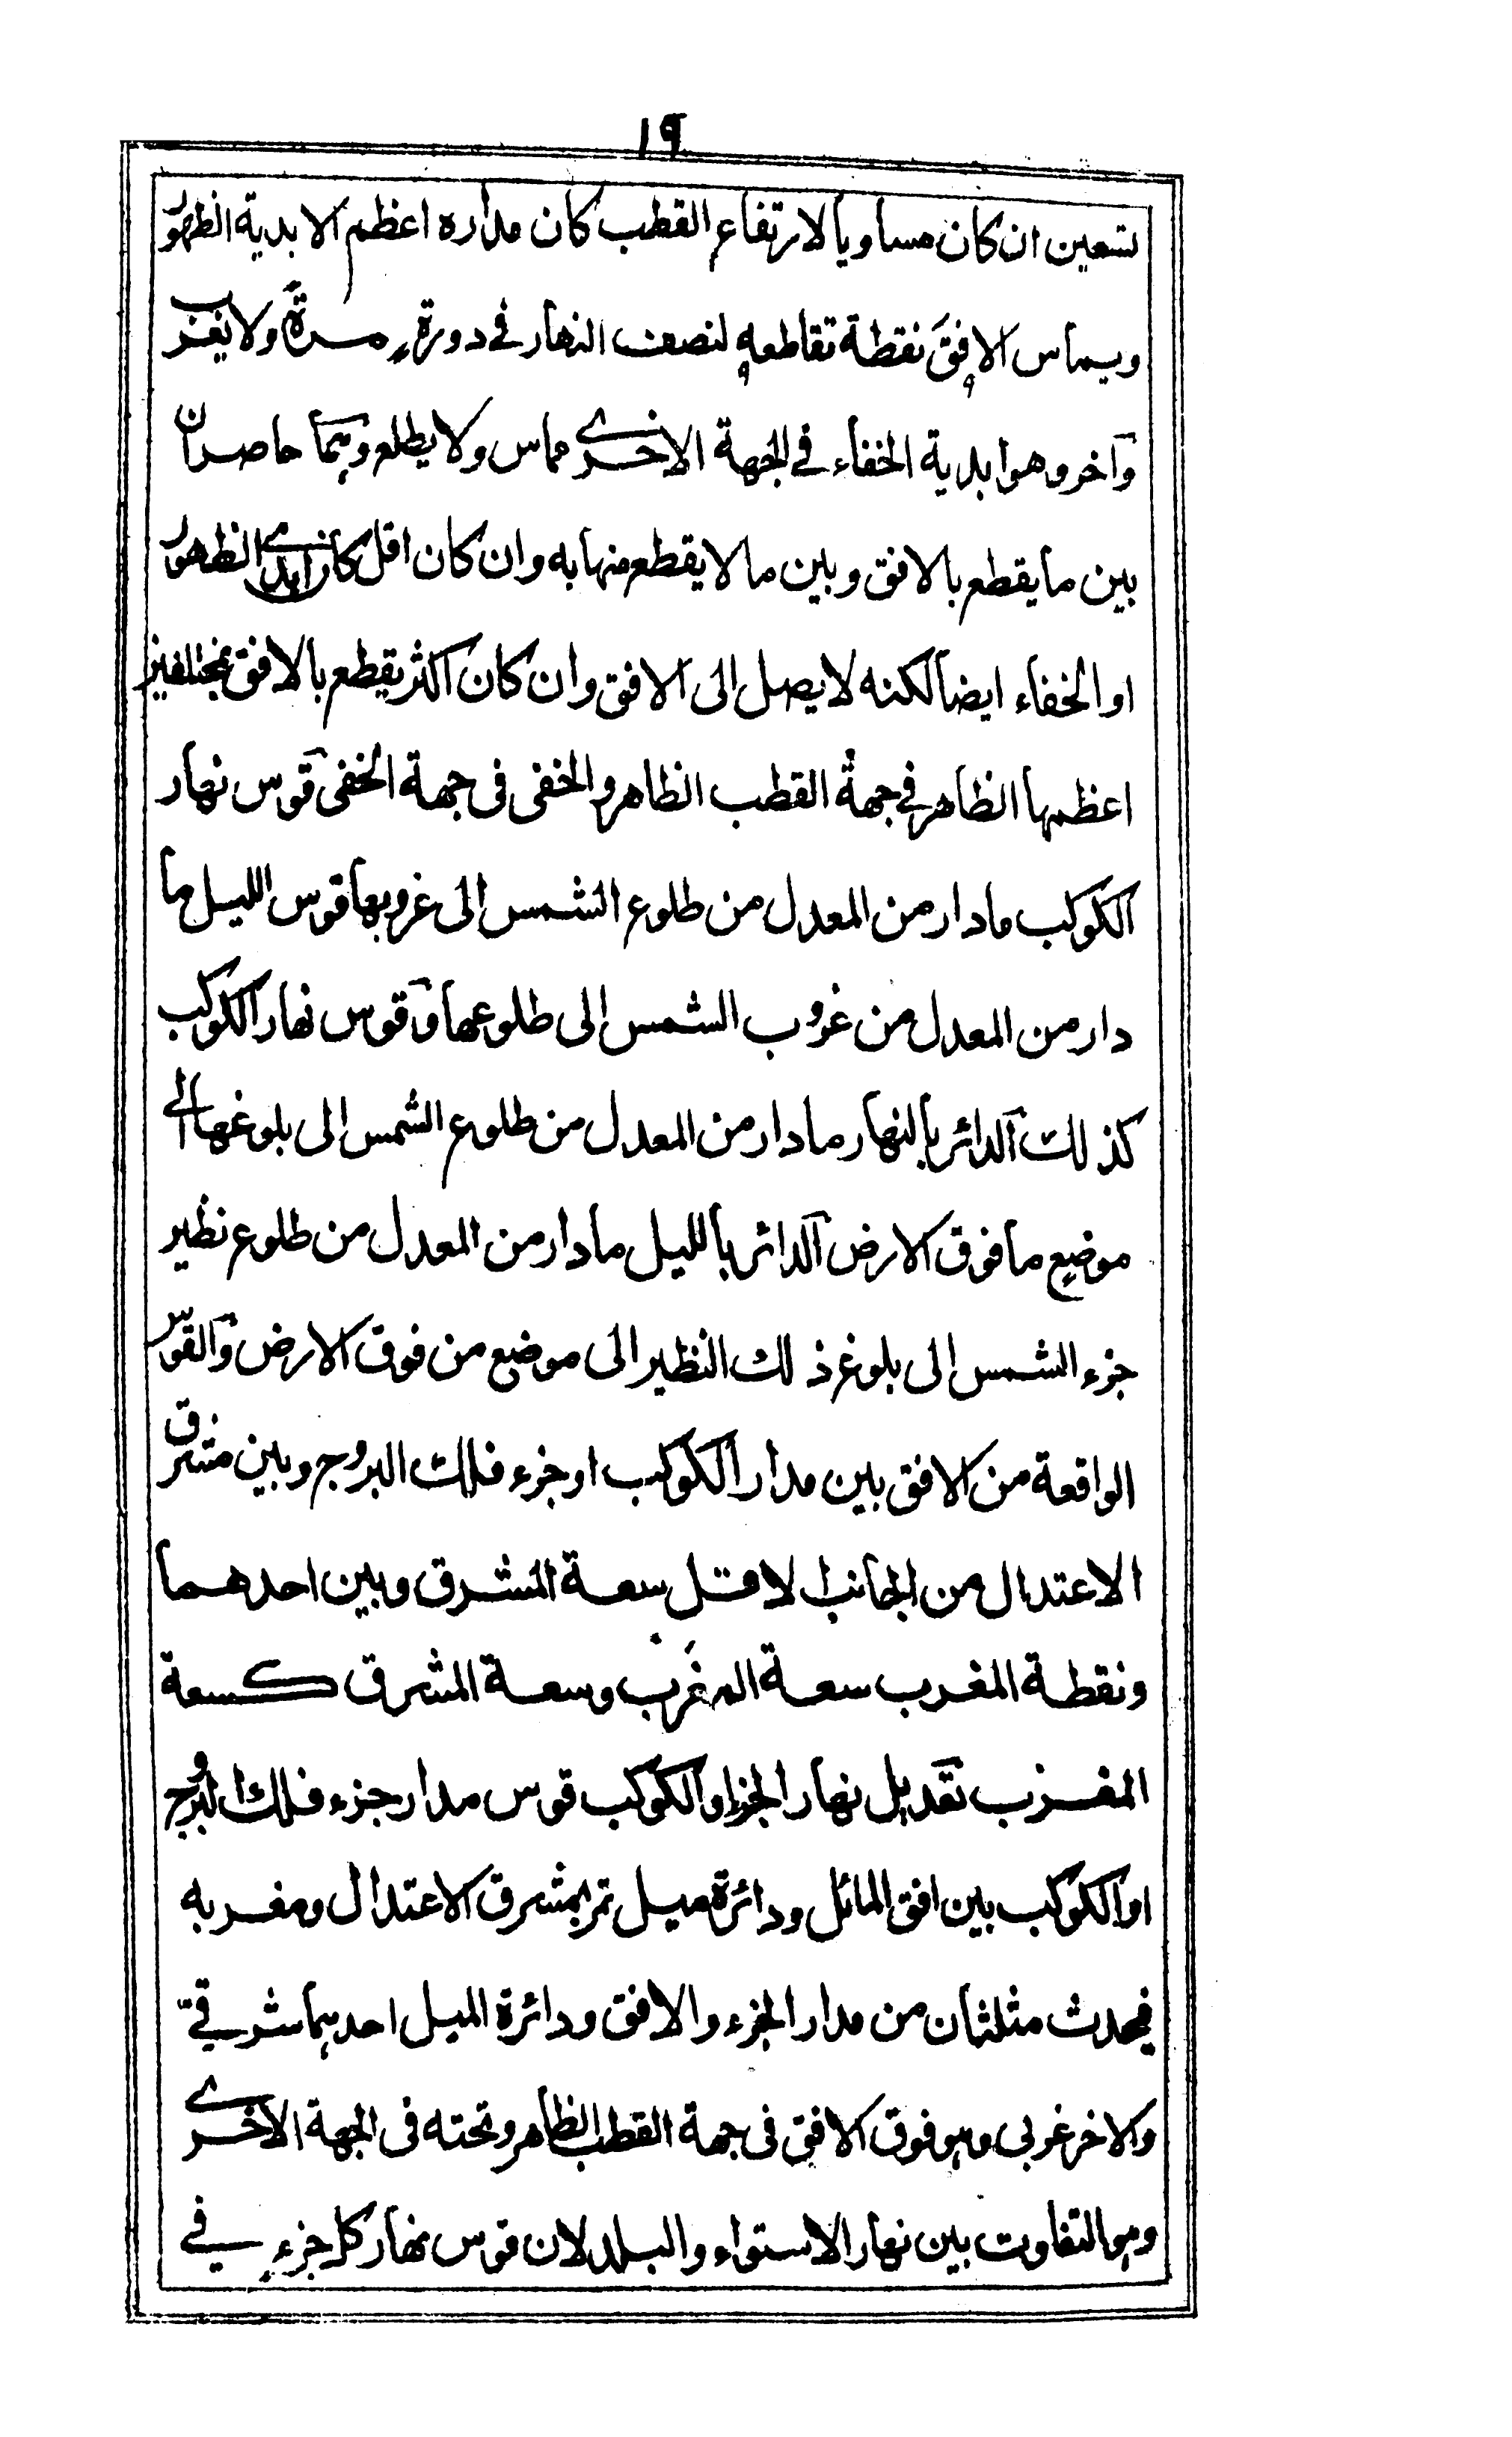 ١٩
تسعين ان كان مساويا لارتفاع القطب كان مداره اعظم الابدية الظهور
ويماس الافق نقطة تقاطعه لنصف النهار في دورة مرة ولا يغرب
وآخر وهو ابدية الخفاء في الجهة الاخرى مماس ولا يطلع وهما حاصران
بين ما يقطع بالافق وبين ما لا يقطع منها به وان كان اقل كان ابدى الظهور
او الخفاء ايضا لكنه لا يصل الى الافق وان كان اكثر يقطع بالافق بمختلفين
اعظمها الظاهر في جهة القطب الظاهر والخفى فى جهة الخفى قوس نهار
الكوكب ما دار من المعدل من طلوع الشمس الى غروبها قوس الليل ما
دار من المعدل من غروب الشمس الى طلوعها وقوس نهار الكوكب
كذلك الدائر بالنهار ما دار من المعدل من طلوع الشمس الى بلوغها الى
موضع ما فوق الارض الدائر بالليل ما دار من المعدل من طلوع نظير
جزء الشمس الى بلوغ ذلك النظير الى موضع من فوق الارض والقوس
الواقعة من الافق بين مدار الكوكب او جزء فلك البروج وبين مشرق
الاعتدال من الجانب الاقل سعة المشرق وبين احدهما
ونقطة المغرب سعة المغرب وسعة المشرق كسعة
المغرب تعديل نهار الجزء او الكوكب قوس مدار جزء فلك البروج
او الكوكب بين افق المائل ودائرة ميل تمر بمشرق الاعتدال ومغربه
فيحدث مثلثان من مدار الجزء والافق ودائرة الميل احدهما شرقيّ
والاخر غربى وهو فوق الافق فى جهة القطب الظاهر وتحته فى الجهة الاخرى
وهو التفاوت بين نهار الاستواء والبلد لان قوس نهار كل جزء في